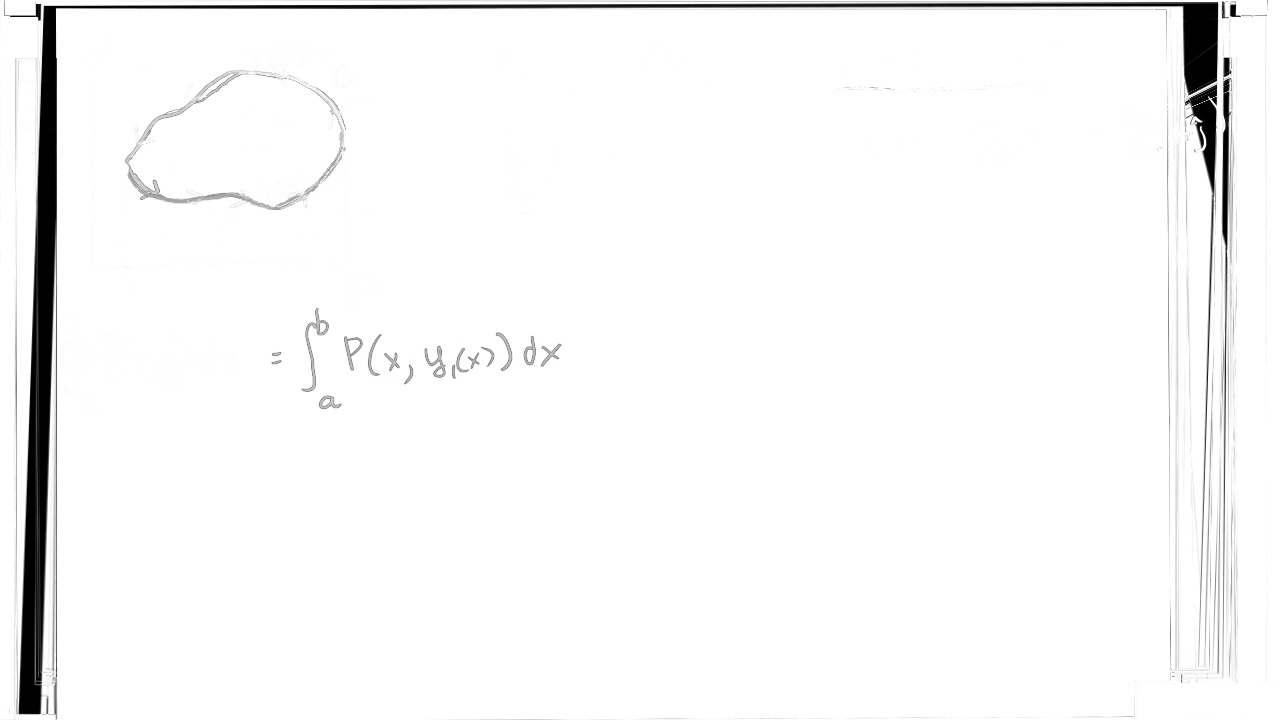 = ∫_a^b P(x, y₁(x)) dx